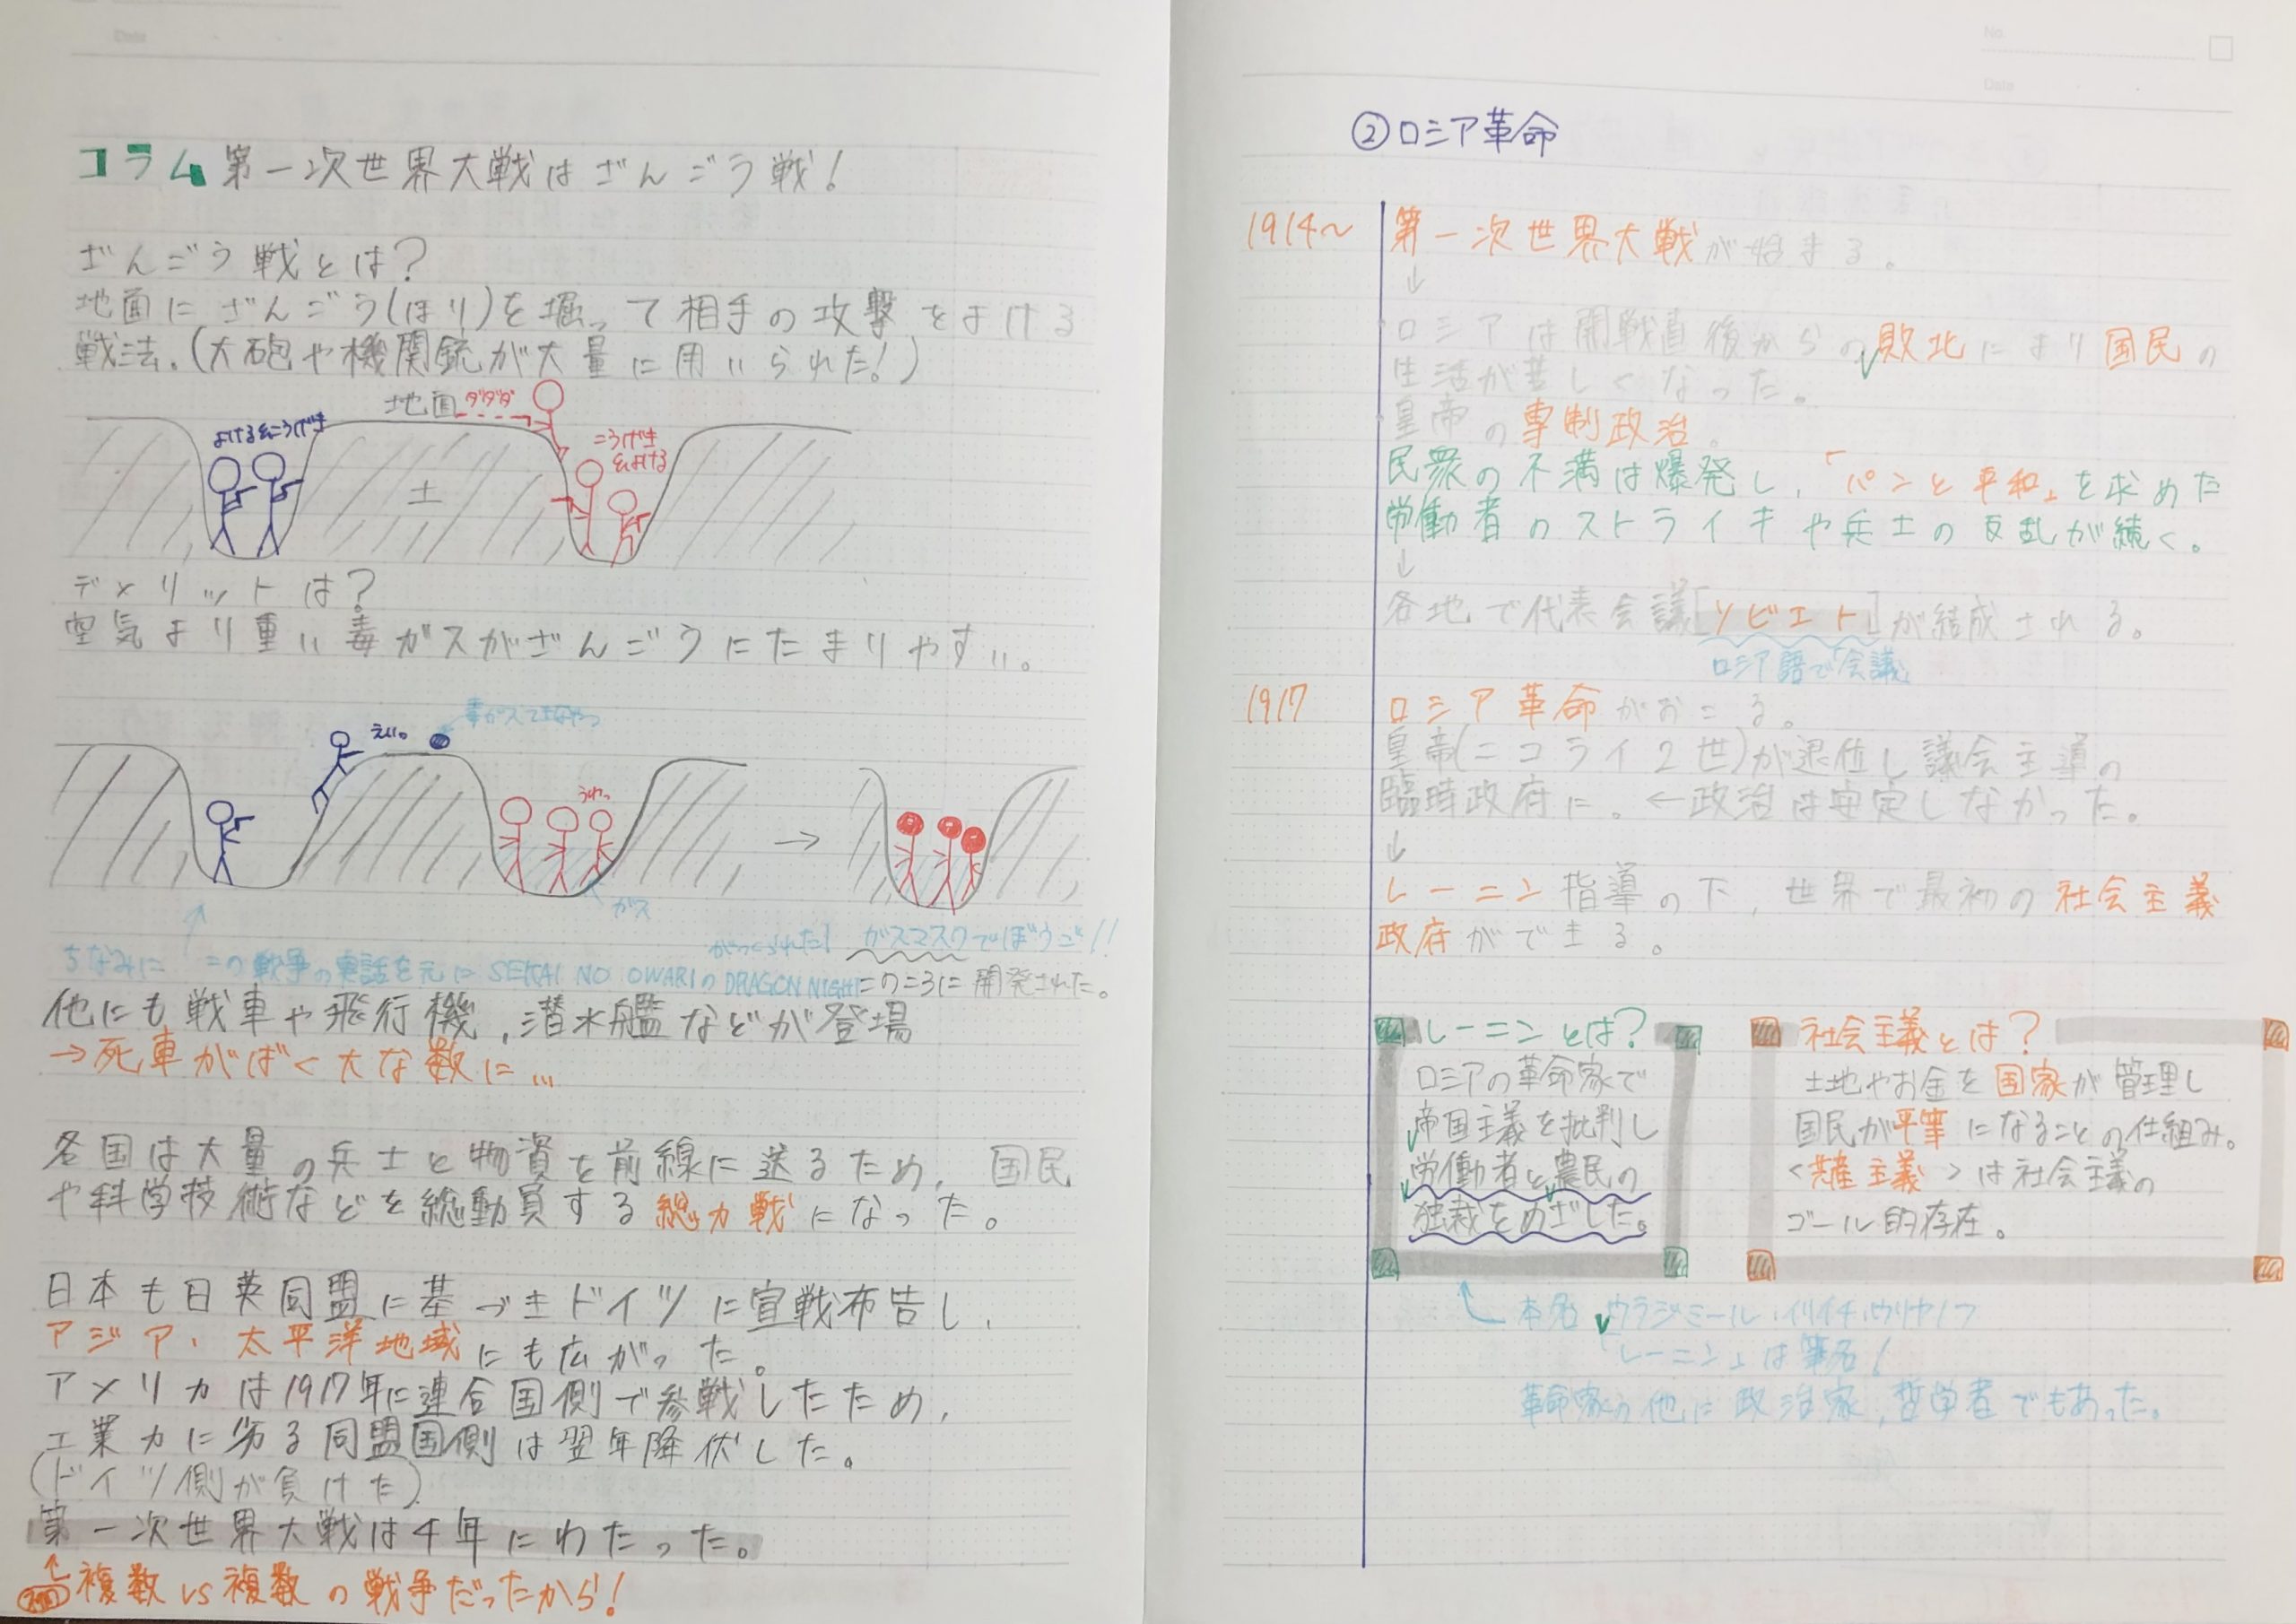 コラム 第一次世界大戦はざんごう戦!
ざんごう戦とは?
地面にざんごう(ほり)を掘って相手の攻撃をよける
戦法.(大砲や機関銃が大量に用いられた!)
地面 ダダダ
よける&こうげき
こうげき
&よける
土
デメリットは?
空気より重い毒ガスがざんごうにたまりやすい。
えい。
うわっ
→
ガス
がつくられた! ガスマスクでぼうご!!
ちなみに この戦争の実話を元に SEKAI NO OWARIの DRAGON NIGHT
このころに開発された。
他にも戦車や飛行機,潜水艦などが登場
→死車がばく大な数に...
各国は大量の兵士と物資を前線に送るため, 国民
や科学技術などを総動員する総力戦になった。
日本も日英同盟に基づきドイツに宣戦布告し,
アジア・太平洋地域にも広がった。
アメリカは1917年に連合国側で参戦したため,
工業力に劣る同盟国側は翌年降伏した。
(ドイツ側が負けた)
第一次世界大戦は4年にわたった。
複数vs複数の戦争だったから!
No
Date
②ロシア革命
1914~ 第一次世界大戦が始まる。
↓
ロシアは開戦直後からの敗北により国民の
生活が苦しくなった。
皇帝の専制政治。
民衆の不満は爆発し,「パンと平和」を求めた
労働者のストライキや兵士の反乱が続く。
↓
各地で代表会議[ソビエト]が結成される。
ロシア語で「会議」
1917 ロシア革命がおこる。
皇帝(ニコライ2世)が退位し議会主導の
臨時政府に。←政治は安定しなかった。
↓
レーニン指導の下,世界で最初の社会主義
政府ができる。
レーニンとは?
ロシアの革命家で
帝国主義を批判し
労働者と農民の
独裁をめざした。
社会主義とは?
土地やお金を国家が管理し
国民が平等になることの仕組み。
<共産主義>は社会主義の
ゴール的存在。
本名 ウラジミール・イリイチ・ウリヤノフ
「レーニン」は筆名!
革命家の他に政治家,哲学者でもあった。